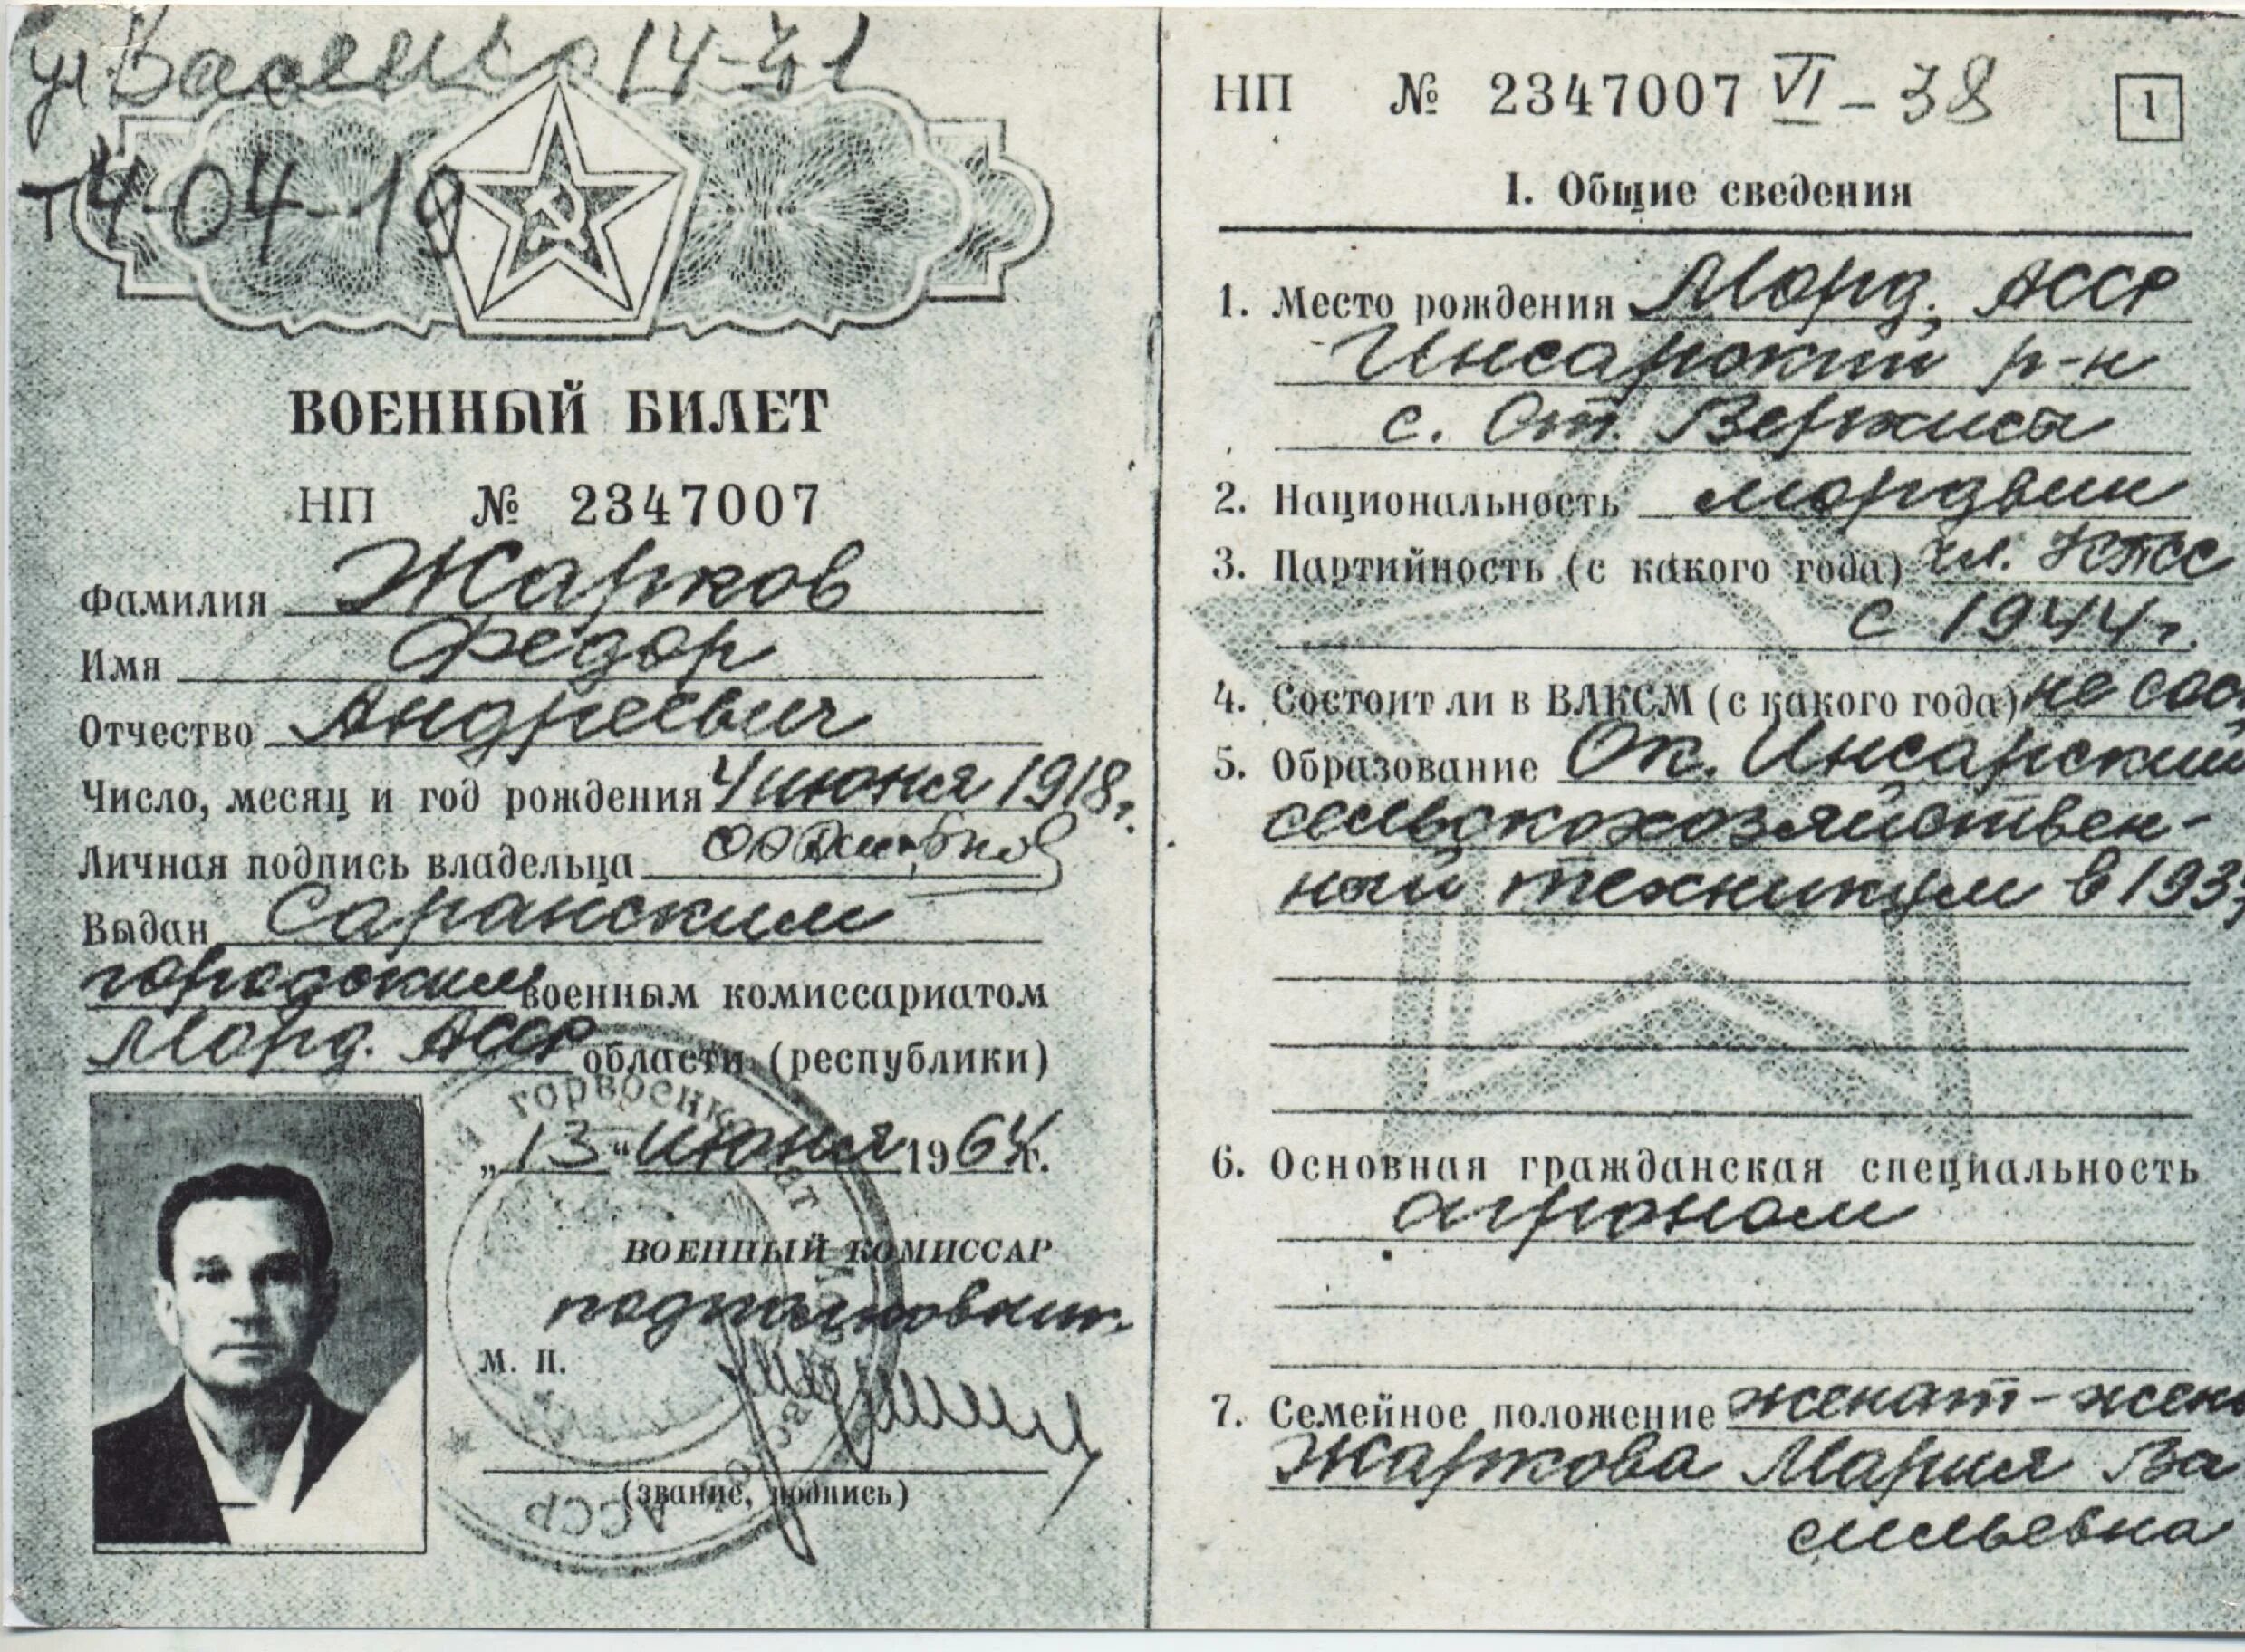 ул 14-41
т 4-04-19
ВОЕННЫЙ БИЛЕТ
НП № 2347007
Фамилия Жарков
Имя Федор
Отчество Андреевич
Число, месяц и год рождения 4 июня 1918 г.
Личная подпись владельца
Выдан Саранским
городским военным комиссариатом
Морд. АССР области (республики)
„13“ июня 1964 г.
ВОЕННЫЙ КОМИССАР
подполковник
М. П.
(звание, подпись)
горвоенкомат
АССР
НП № 2347007 VI-38
1
I. Общие сведения
1. Место рождения Морд. АССР
Инсарский р-н
с. Ст. Верхиса
2. Национальность мордвин
3. Партийность (с какого года) чл. КПСС
с 1944 г.
4. Состоит ли в ВЛКСМ (с какого года) не сос
5. Образование Ок. Инсарский
сельскохозяйствен-
ный техникум в 193
6. Основная гражданская специальность
агроном
7. Семейное положение женат - жена
Жаркова Мария Ва
сильевна